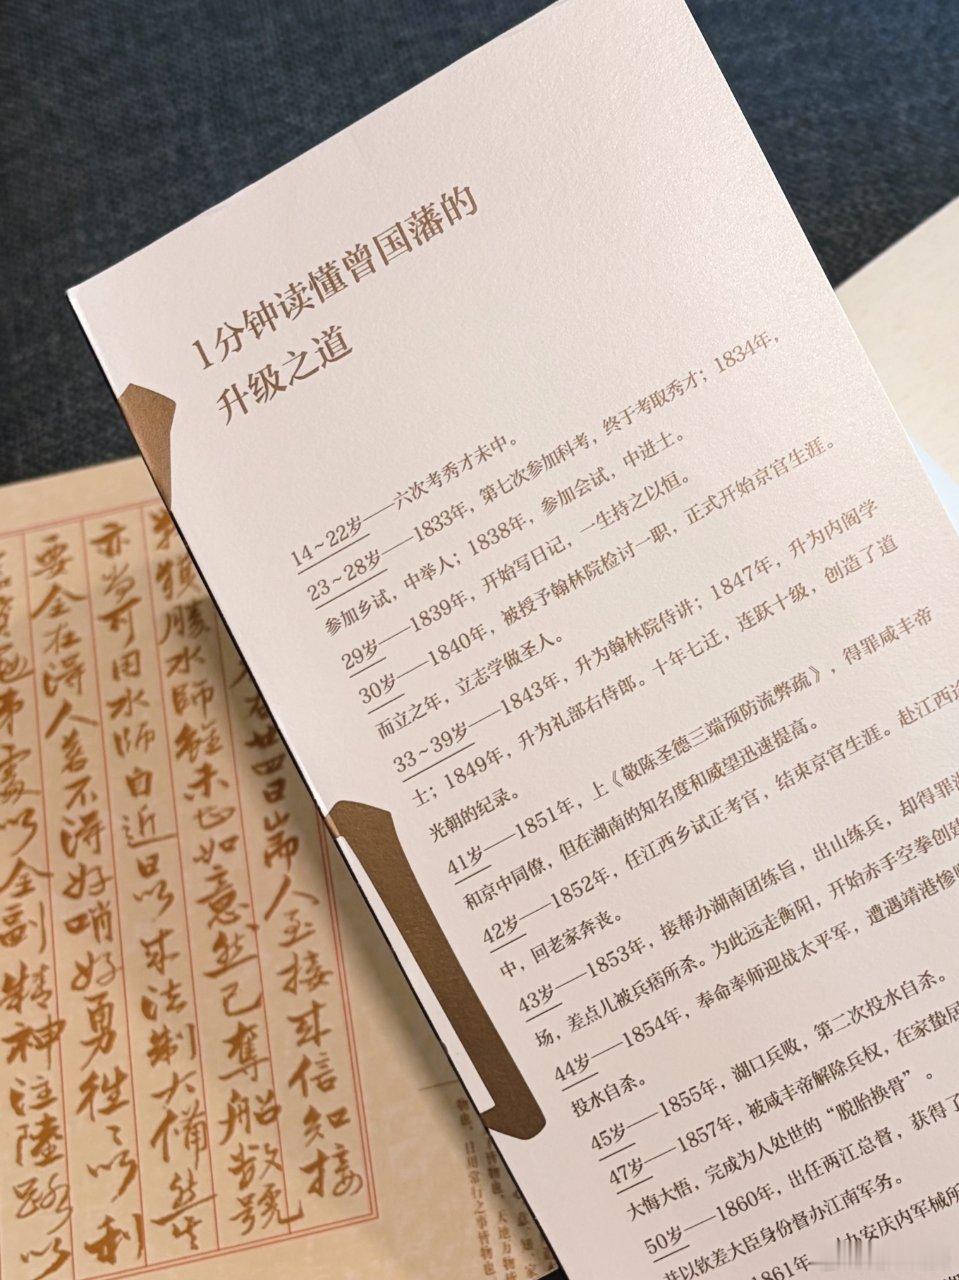 1分钟读懂曾国藩的
升级之道
14~22岁——六次考秀才未中。
23~28岁——1833年，第七次参加科考，终于考取秀才；1834年，
参加乡试，中举人；1838年，参加会试，中进士。
29岁——1839年，开始写日记，一生持之以恒。
30岁——1840年，被授予翰林院检讨一职，正式开始京官生涯。
而立之年，立志学做圣人。
33~39岁——1843年，升为翰林院侍讲；1847年，升为内阁学
士；1849年，升为礼部右侍郎。十年七迁，连跃十级，创造了道
光朝的纪录。
41岁——1851年，上《敬陈圣德三端预防流弊疏》，得罪咸丰帝
和京中同僚，但在湖南的知名度和威望迅速提高。
42岁——1852年，任江西乡试正考官，结束京官生涯。赴江西途
中，回老家奔丧。
43岁——1853年，接帮办湖南团练旨，出山练兵，却得罪湖
场，差点儿被兵痞所杀。为此远走衡阳，开始赤手空拳创建
44岁——1854年，奉命率师迎战太平军，遭遇靖港惨败
投水自杀。
45岁——1855年，湖口兵败，第二次投水自杀。
47岁——1857年，被咸丰帝解除兵权，在家蛰居
大悔大悟，完成为人处世的“脱胎换骨”。
50岁——1860年，出任两江总督，获得了
并以钦差大臣身份督办江南军务。
1861年——办安庆内军械所
廿四日崗人至接來信知接
勝水師雖未必如意然已奪船数號
亦当可用水师自近日以来法制大備然
要全在得人若不得好哨好勇往々以利
以全副精神注陸路以